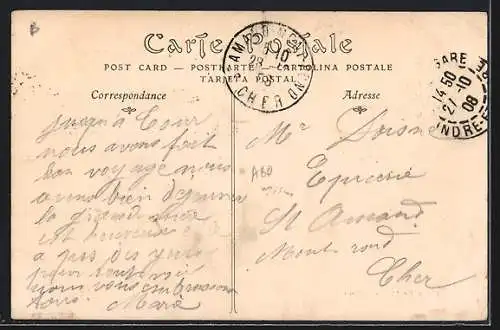 B
Carte Postale
POST CARD — POSTKARTE — CARTOLINA POSTALE
TARJETA POSTAL
Correspondance
Adresse
ST AMAND MONT-ROND
28 -10
08
CHER
GARE
14 50
27 -10
08
INDRE-E
jusqu'à Tour
nous avons fait
bon voyage nous
avons bien déjeuner
la grand mère
est heureuse
a pas des yeux
pour tout voir
nous vous embrassons
tous. Marie
A80
Mr Loisne
Epicerie
St Amand
Mont rond
Cher